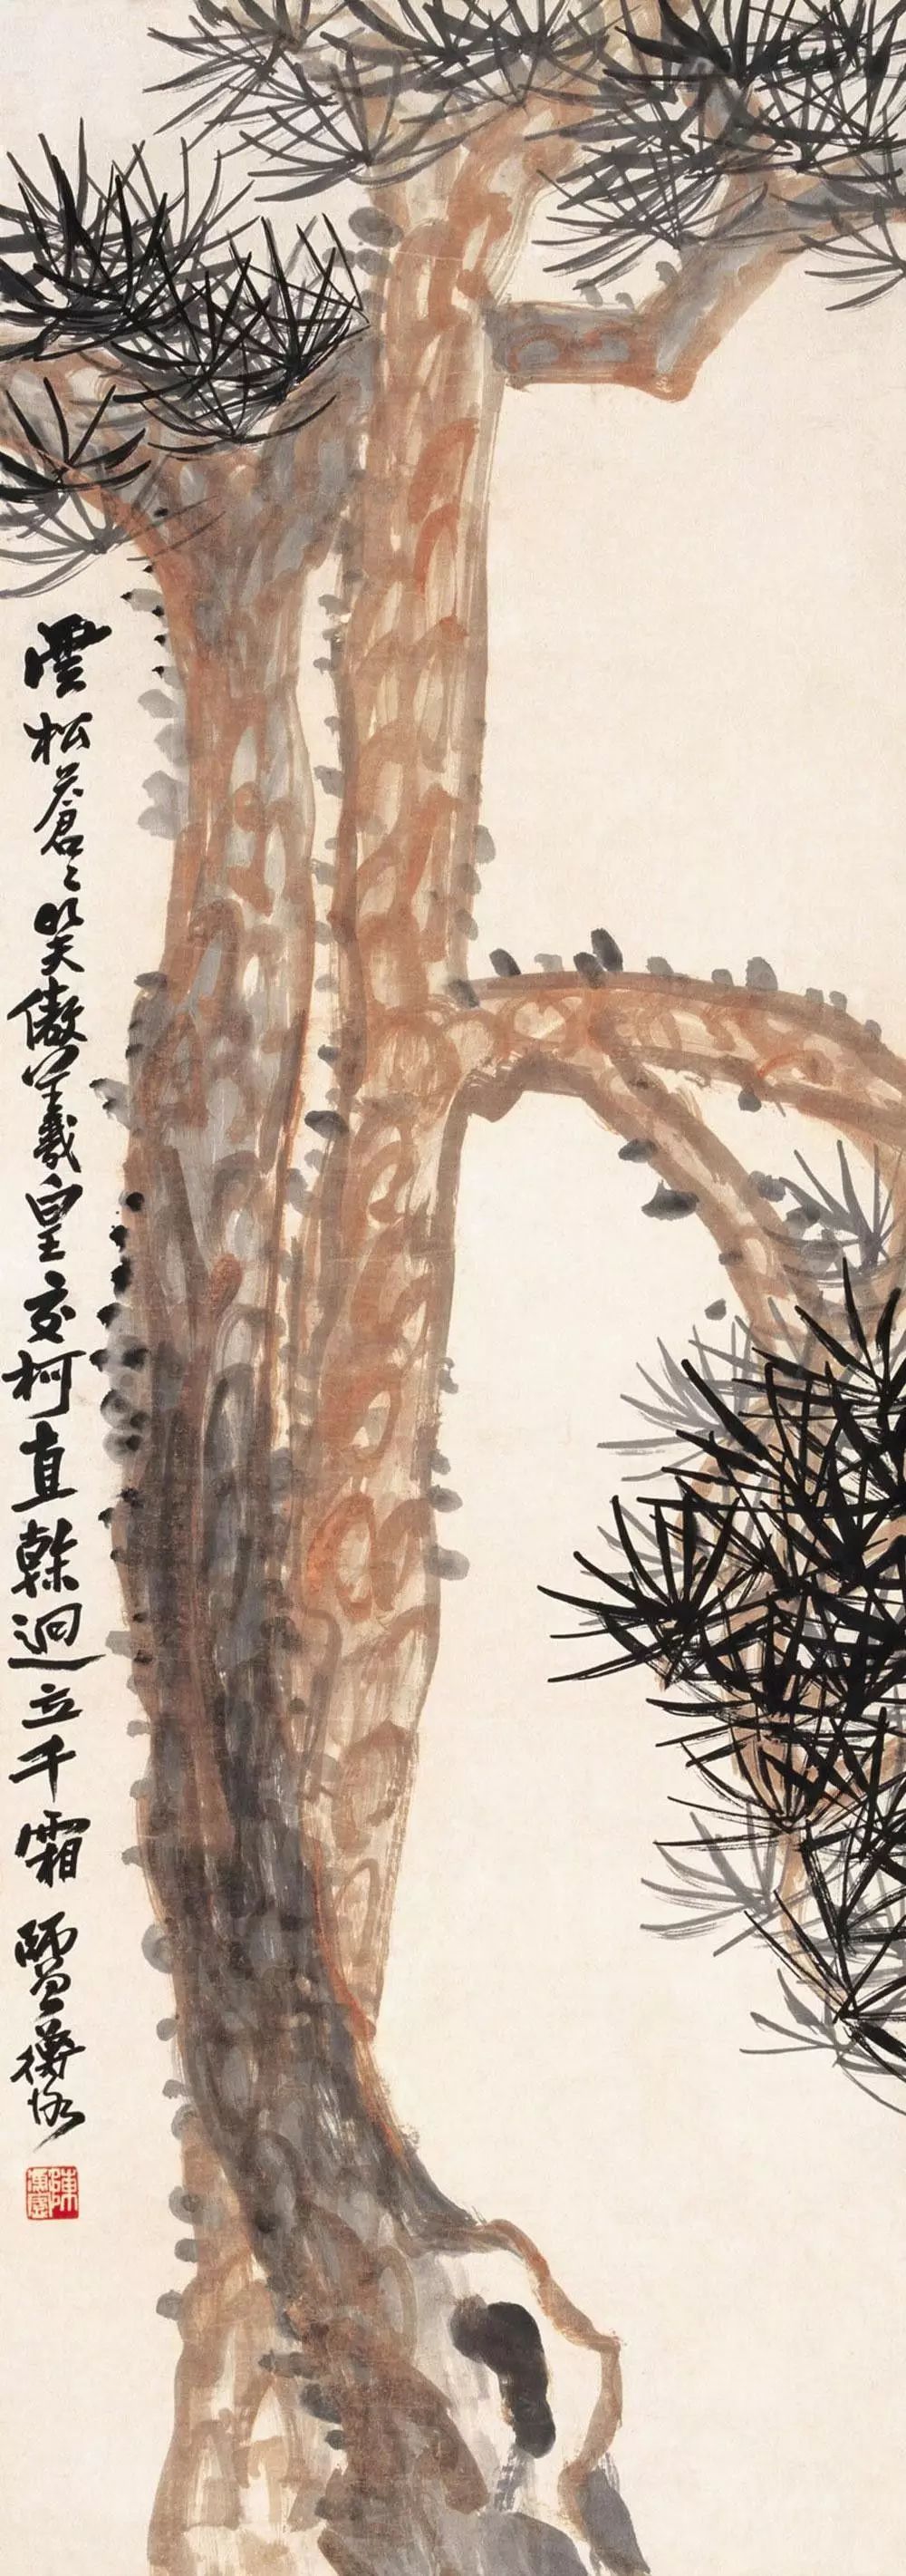 雲松蒼蒼笑傲羲皇交柯直榦迥立千霜 師曾衡恪
陳衡恪